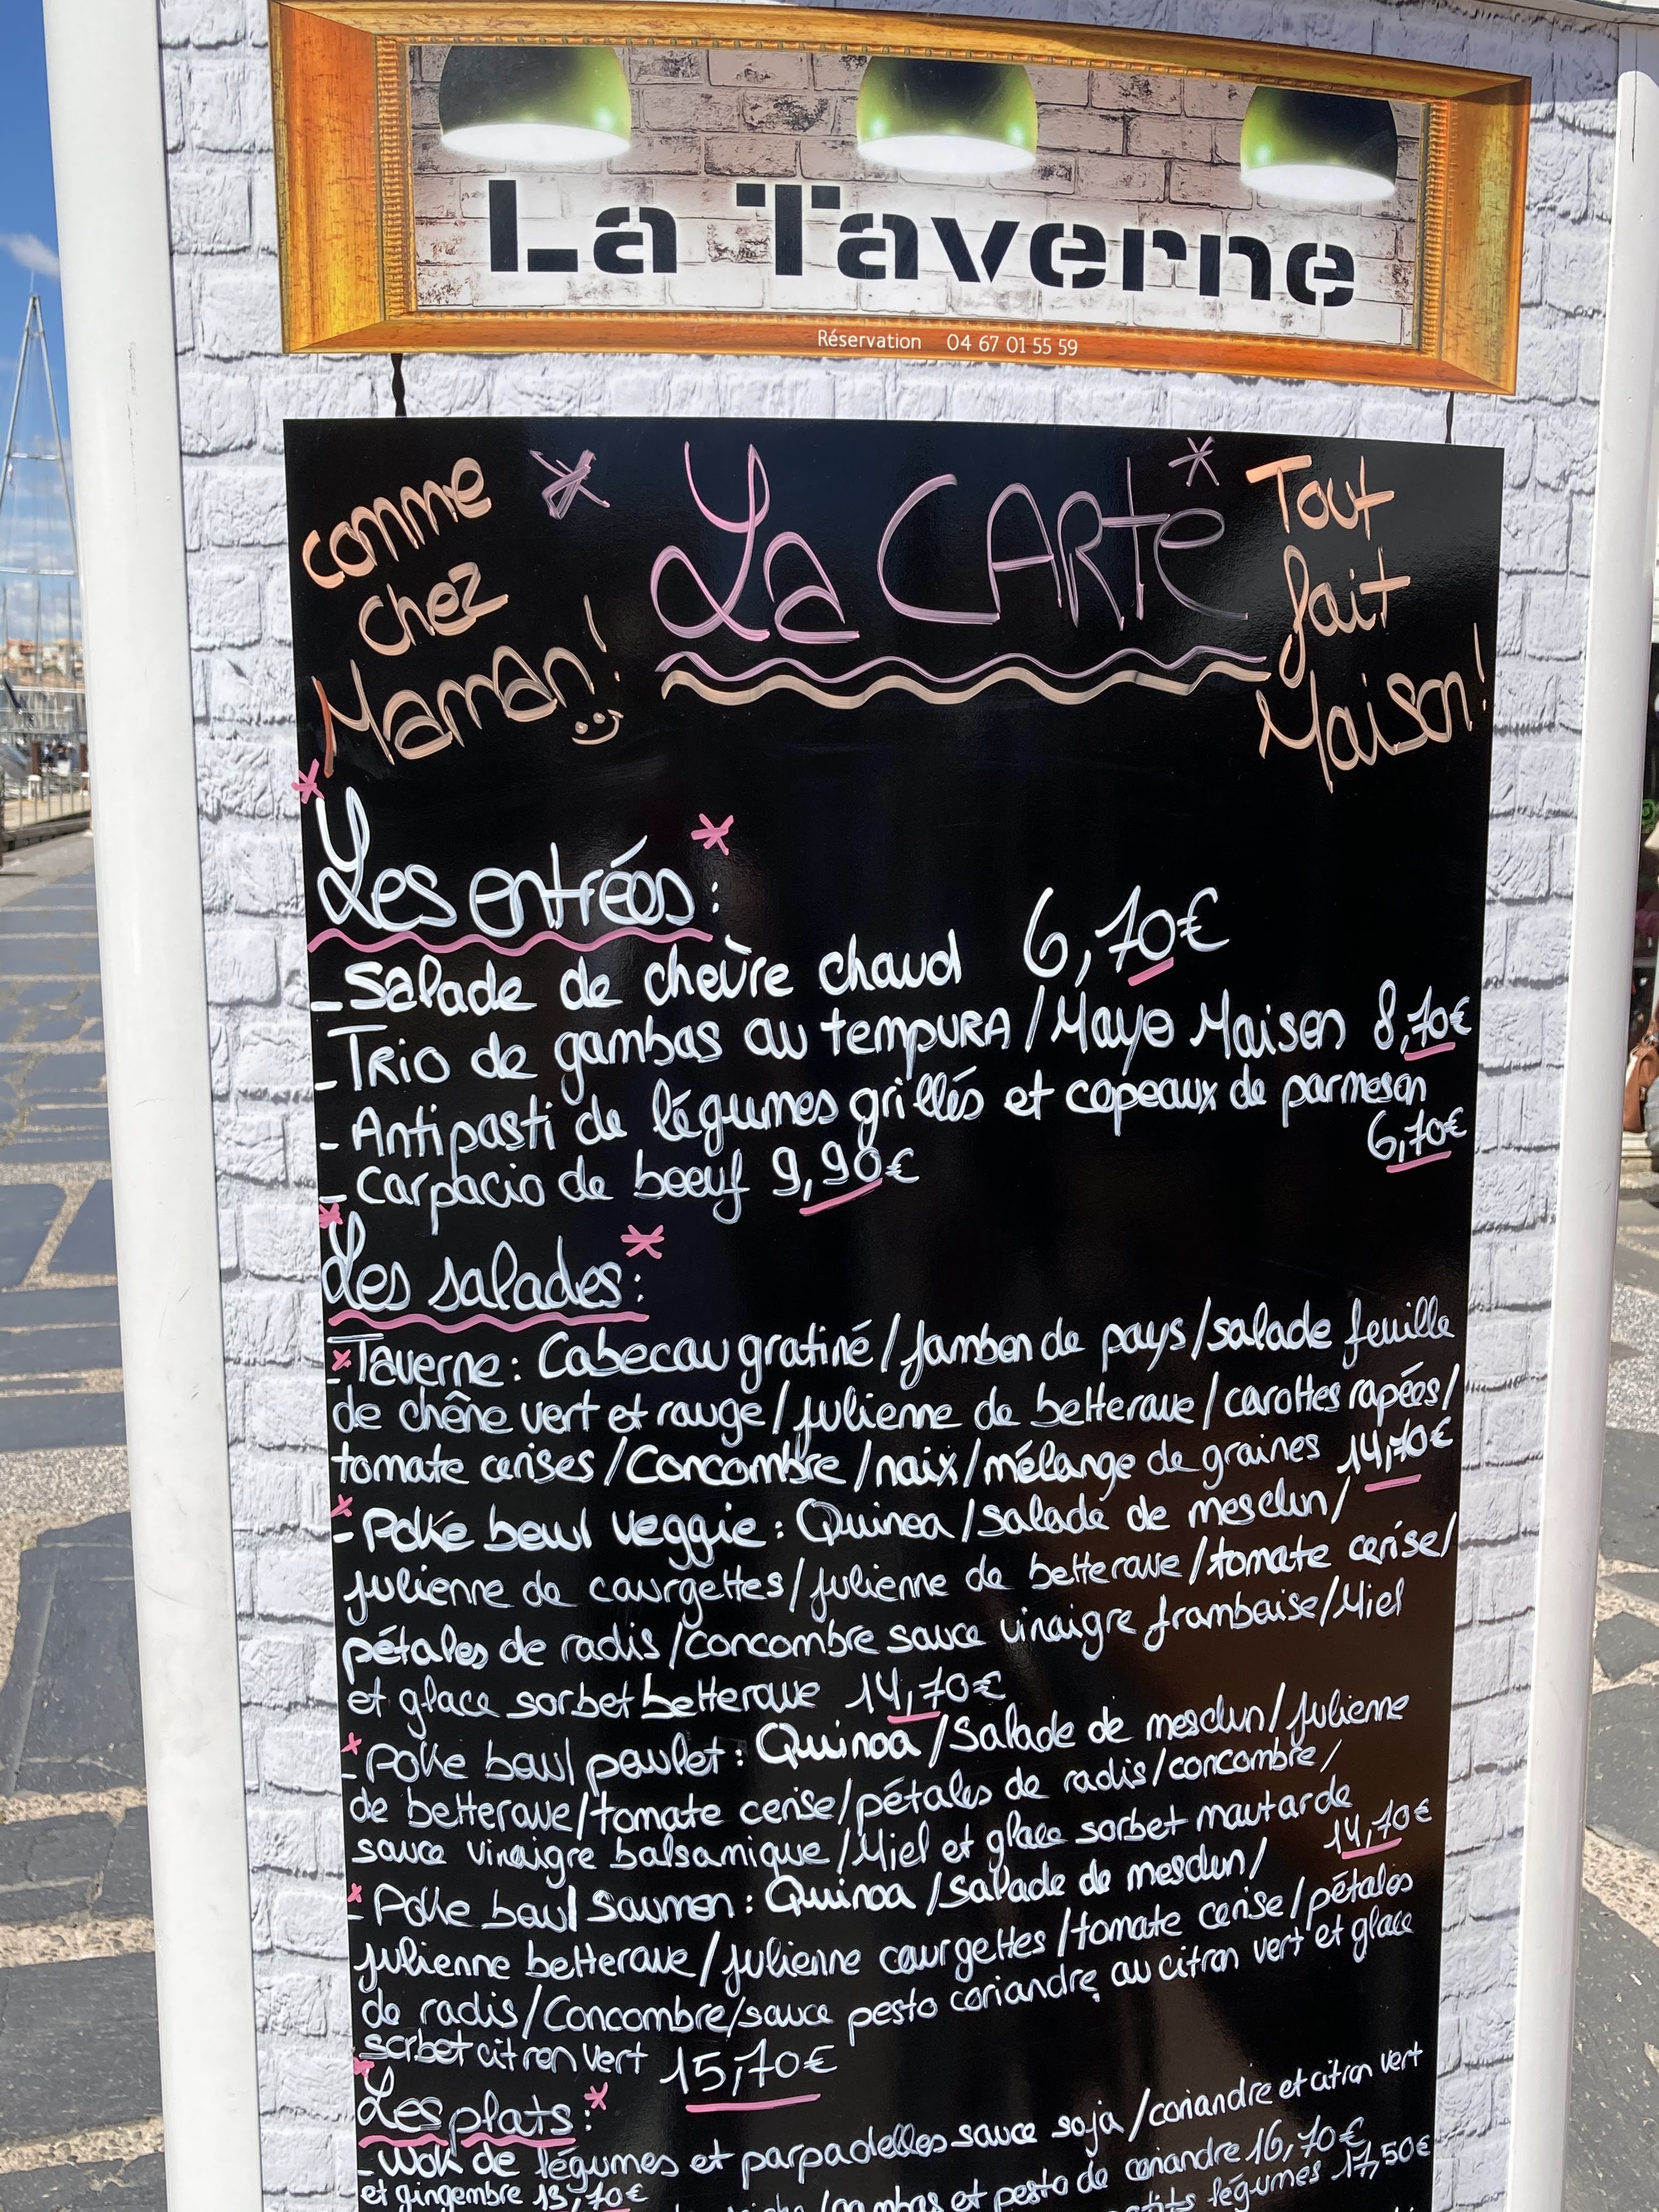 La Taverne
Réservation 04 67 01 55 59
comme
chez
Maman!
La CARTE
Tout
fait
Maison!
Les entrées:
- Salade de chèvre chaud 6,70€
- TRio de gambas au tempuRA / Mayo Maison 8,70€
- Antipasti de légumes grillés et copeaux de parmesan
6,70€
- Carpacio de boeuf 9,90€
Les salades:
- Taverne: Cabecau gratiné / Jambon de pays / salade feuille
de chêne vert et rouge / julienne de betterave / carottes rapées /
tomate cerises / Concombre / noix / mélange de graines 14,70€
- Poké bowl veggie: Quinoa / salade de mesclun /
julienne de courgettes / julienne de betterave / tomate cerise /
pétales de radis / concombre sauce vinaigre framboise / Miel
et glace sorbet betterave 14,70€
- Poke bowl poulet: Quinoa / Salade de mesclun / julienne
de betterave / tomate cerise / pétales de radis / concombre /
sauce vinaigre balsamique / Miel et glace sorbet moutarde
14,70€
- Poke bowl saumon: Quinoa / salade de mesclun /
julienne betterave / julienne courgettes / tomate cerise / pétales
de radis / Concombre / sauce pesto coriandre au citron vert et glace
sorbet citron vert 15,70€
Les plats:
- Wok de légumes et parpadelles sauce soja / coriandre et citron vert
et gingembre 13,70€
/ gambas et pesto de coriandre 16,70€
légumes 17,50€